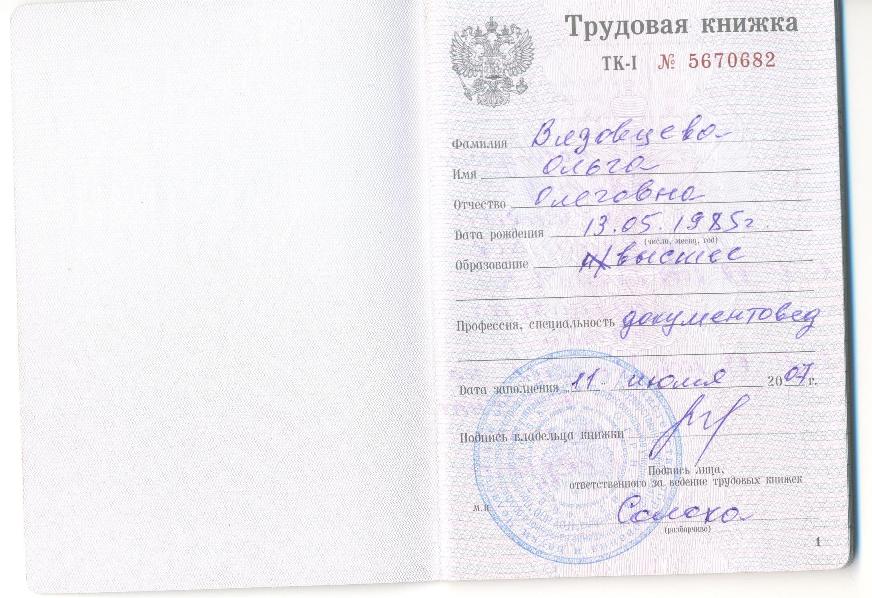 Трудовая книжка
ТК-I № 5670682
Фамилия Вядовцева
Имя Ольга
Отчество Олеговна
Дата рождения 13.05.1985г
(число, месяц, год)
Образование н/высшее
Профессия, специальность документовед
Дата заполнения 11 июля 2007 г.
Подпись владельца книжки
Подпись лица,
ответственного за ведение трудовых книжек
м.п.
(разборчиво)
1